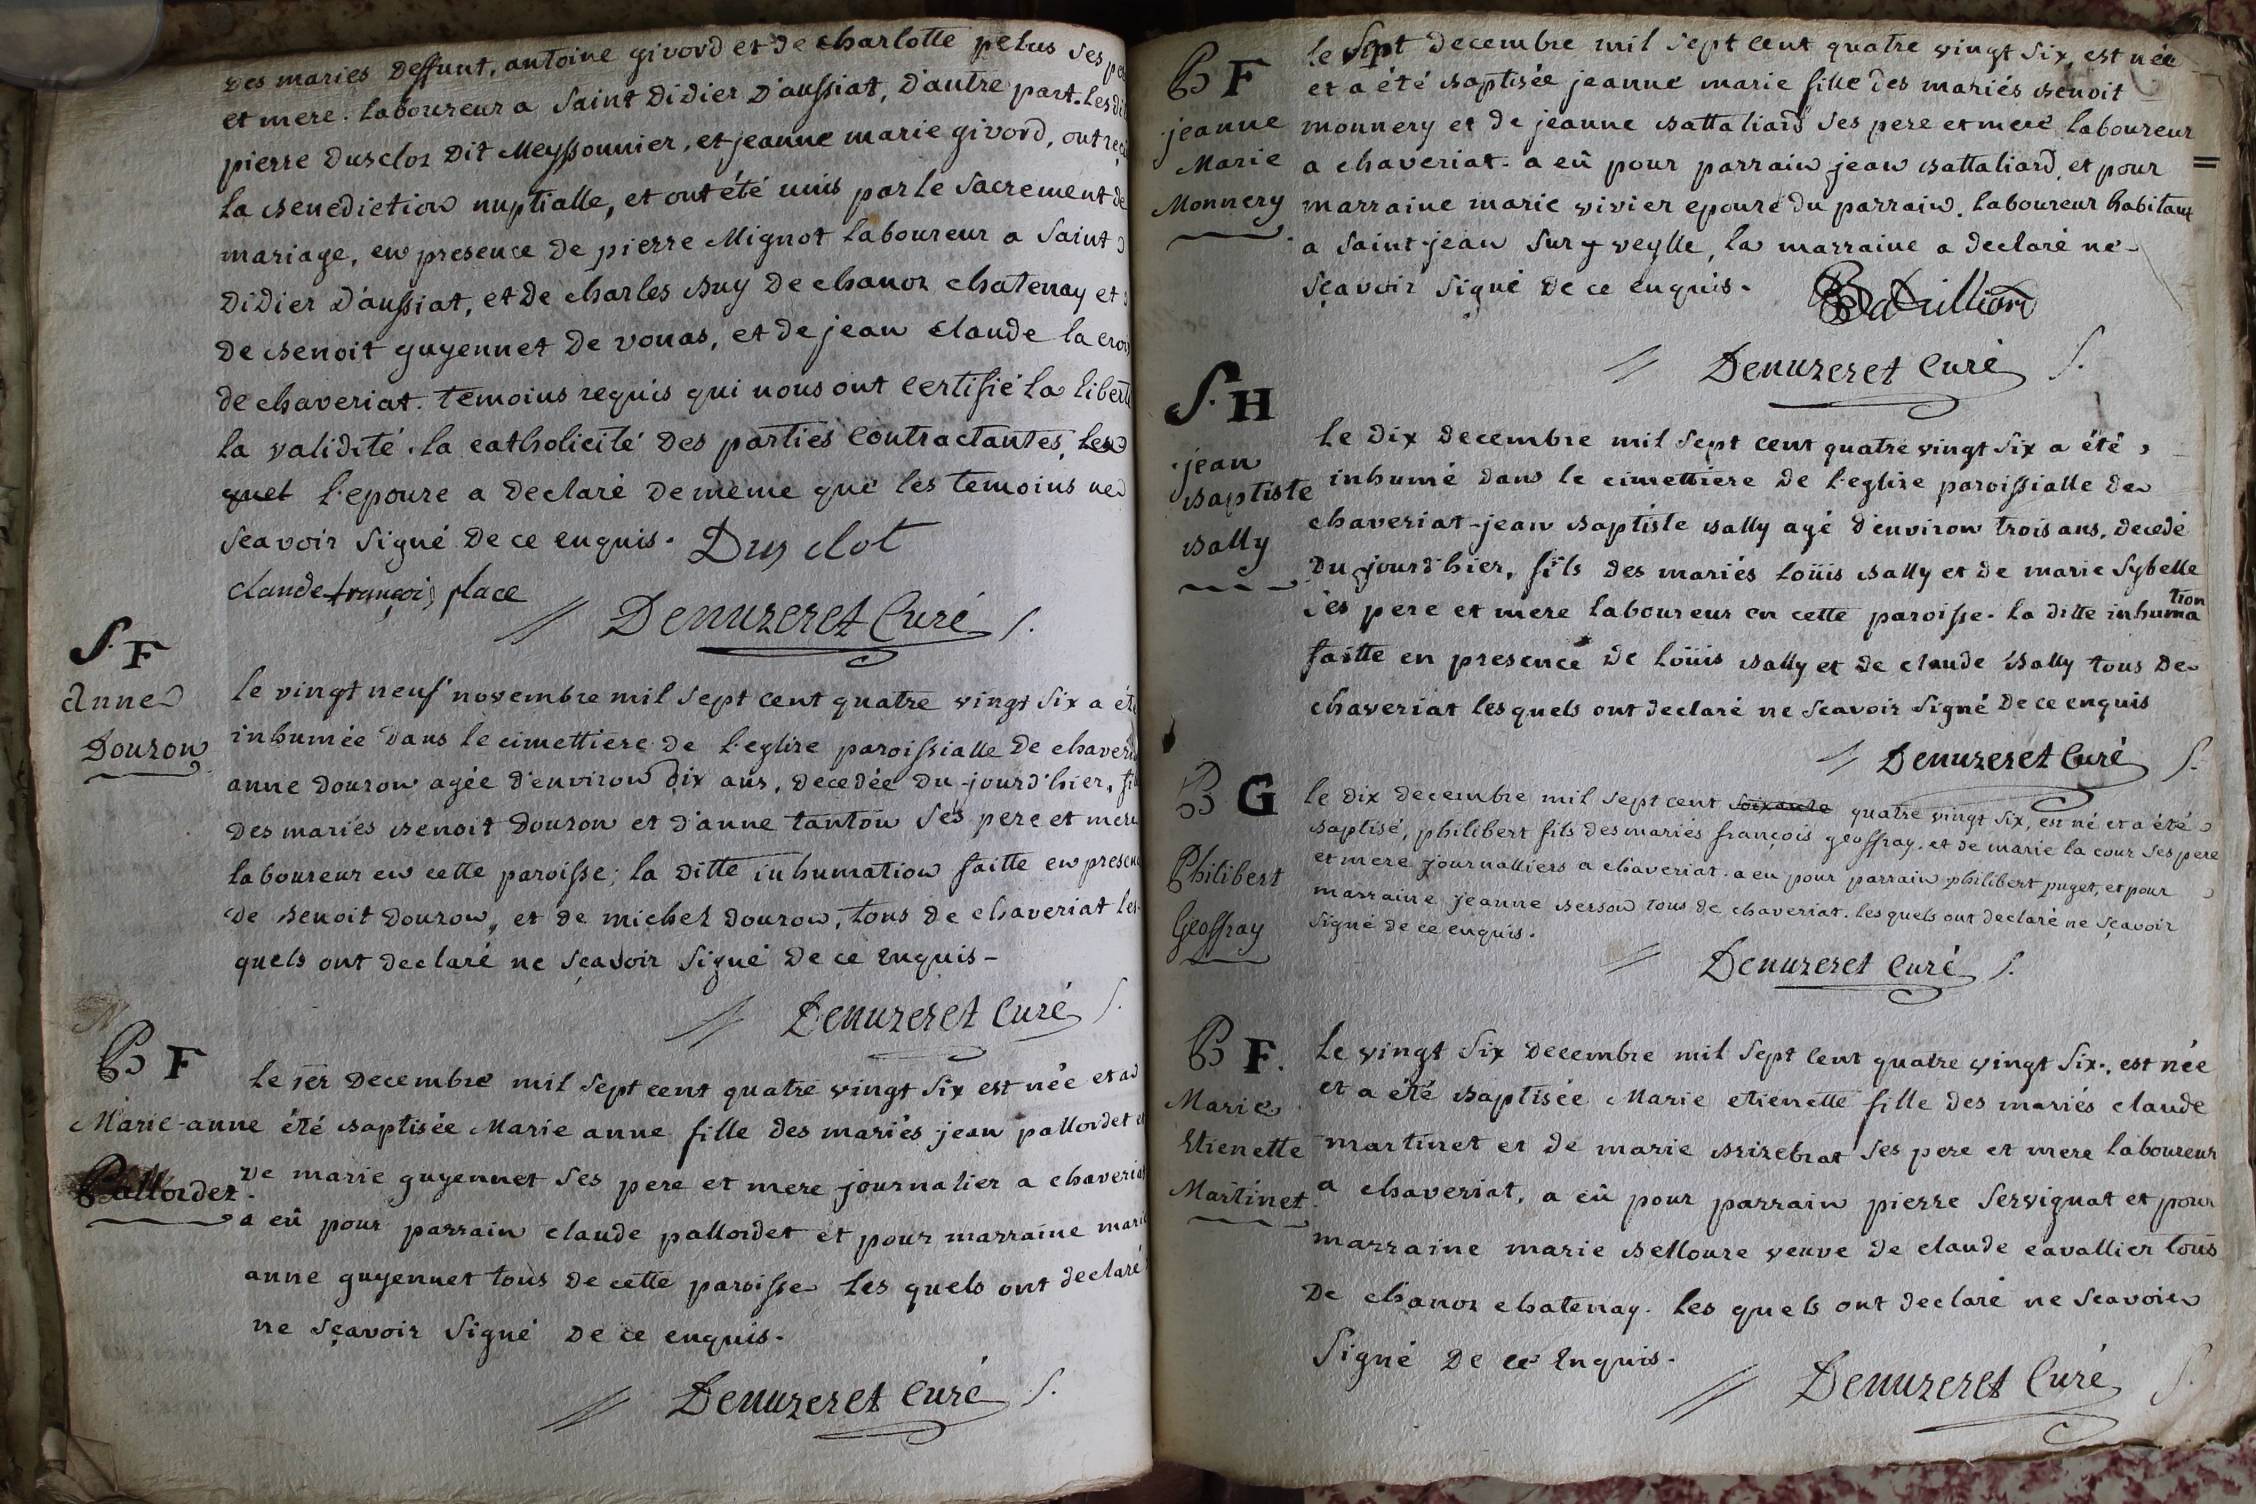 des mariés deffunt, antoine givord et de charlotte pebus ses
et mere. laboureur a saint didier d'aussiat, d'autre part. les
pierre dusclos dit Meyssonnier, et jeanne marie givord, ont
la benediction nuptialle, et ont été unis par le sacrement de
mariage, en presence de pierre Mignot laboureur a saint
didier d'aussiat, et de charles buy de chanoz chatenay et
de benoit guyennet de vonas, et de jean claude la
de chaveriat. temoins requis qui nous ont certifié la
la validité. la catholicité des parties contractantes,
quel l'epouze a declaré de même que les temoins ne
scavoir signé de ce enquis. Dusclot
claude françois place
Denuzeret Curé
S. F
Anne
Douron
le vingt neuf novembre mil sept cent quatre vingt six a été
inhumée dans le cimettiere de l'eglize paroissialle de
anne douron agée d'environ dix ans, decedée du jourd'hier,
des mariés benoit douron et d'anne tanton ses pere et mere
laboureur en cette paroisse; la ditte inhumation faitte en
de benoit douron, et de michel douron, tous de chaveriat les
quels ont declaré ne sçavoir signé de ce enquis -
Denuzeret Curé
B F
Marie-anne
Pallordet
le 1er decembre mil sept cent quatre vingt six est née et a
été baptisée Marie anne fille des mariés jean pallordet et
de marie guyennet ses pere et mere journalier a chaveriat
a eû pour parrain claude pallordet et pour marraine marie
anne guyennet tous de cette paroisse les quels ont declaré
ne sçavoir signé de ce enquis.
Denuzeret Curé
B F
jeanne
Marie
Monnery
le sept decembre mil sept cent quatre vingt six, est née
et a été baptisée jeanne marie fille des mariés benoit
monnery et de jeanne battaliard ses pere et mere laboureur
a chaveriat. a eû pour parrain jean battaliard, et pour
marraine marie vivier epouze du parrain. laboureur habitant
a saint-jean sur veylle, la marraine a declaré ne
sçavoir signé de ce enquis.
Denuzeret Curé
S. H
jean
baptiste
bally
le dix decembre mil sept cent quatre vingt six a été
inhumé dans le cimettiere de l'eglize paroissialle de
chaveriat jean baptiste bally agé d'environ trois ans, decedé
du jourd'hier, fils des mariés loüis bally et de marie sybelle
ses pere et mere laboureur en cette paroisse. la ditte inhumation
faitte en presence de loüis bally et de claude bally tous de
chaveriat les quels ont declaré ne scavoir signé de ce enquis
Denuzeret Curé
B G
Philibert
Geoffray
le dix decembre mil sept cent soixante quatre vingt six, est né et a été
baptisé, philibert fils des mariés françois geoffray. et de marie la cour ses pere
et mere journalliers a chaveriat. a eu pour parrain philibert puget, et pour
marraine jeanne berson tous de chaveriat. les quels ont declaré ne sçavoir
signé de ce enquis.
Denuzeret Curé
B F.
Marie
Etienette
Martinet
le vingt six decembre mil sept cent quatre vingt six., est née
et a été baptisée Marie etienette fille des mariés claude
martinet et de marie brizebrat ses pere et mere laboureur
a chaveriat, a eû pour parrain pierre servignat et pour
marraine marie bellouze veuve de claude cavallier tous
de chanoz chatenay. les quels ont declaré ne scavoir
signé de ce Enquis.
Denuzeret Curé